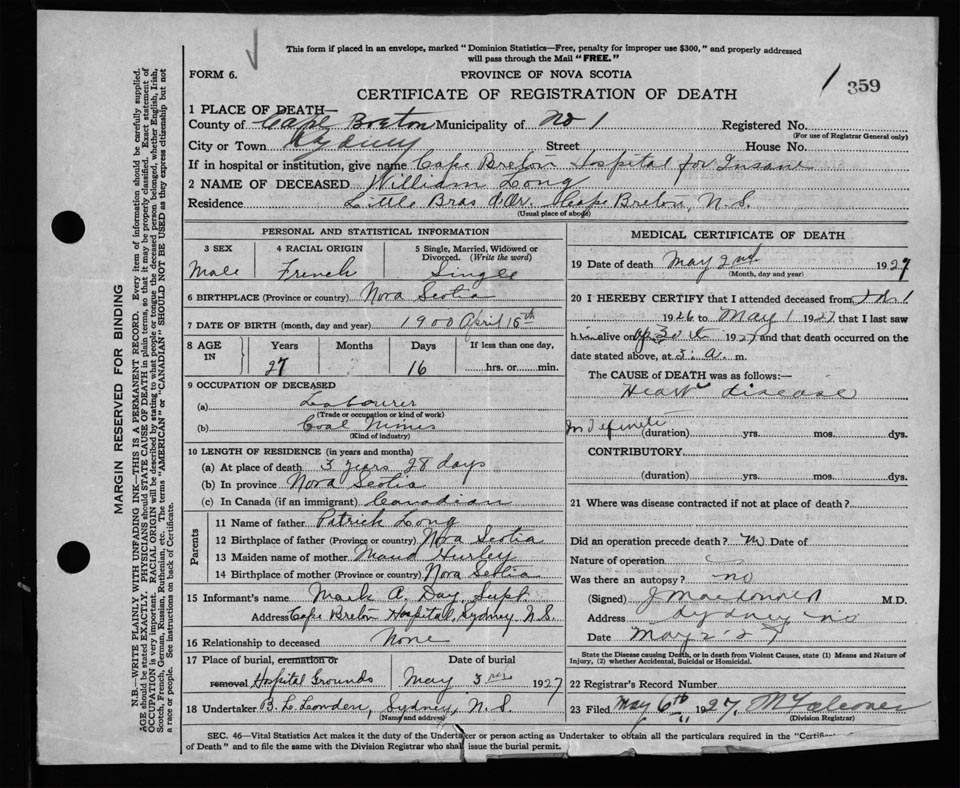 This form if placed in an envelope, marked "Dominion Statistics—Free, penalty for improper use $300," and properly addressed
will pass through the Mail "FREE."
FORM 6. PROVINCE OF NOVA SCOTIA
359
CERTIFICATE OF REGISTRATION OF DEATH
1 PLACE OF DEATH—
County of Cape Breton Municipality of No 1 Registered No.
(For use of Registrar General only)
City or Town Sydney Street House No.
If in hospital or institution, give name Cape Breton Hospital for Insane
2 NAME OF DECEASED William Long
Residence Little Bras d'Or. Cape Breton, N.S.
(Usual place of abode)
PERSONAL AND STATISTICAL INFORMATION
3 SEX 4 RACIAL ORIGIN 5 Single, Married, Widowed or
Divorced. (Write the word)
Male French Single
6 BIRTHPLACE (Province or country) Nova Scotia
7 DATE OF BIRTH (month, day and year) 1900 April 15th
8 AGE IN Years Months Days If less than one day,
27 16 hrs. or min.
9 OCCUPATION OF DECEASED
(a) Labourer
(Trade or occupation or kind of work)
(b) Coal Mines
(Kind of industry)
10 LENGTH OF RESIDENCE (in years and months)
(a) At place of death 3 years 28 days
(b) In province Nova Scotia
(c) In Canada (if an immigrant) Canadian
Parents
11 Name of father Patrick Long
12 Birthplace of father (Province or country) Nova Scotia
13 Maiden name of mother Maud Hurley
14 Birthplace of mother (Province or country) Nova Scotia
15 Informant's name Mark A. Day, Supt.
Address Cape Breton Hospital, Sydney N.S.
16 Relationship to deceased None
17 Place of burial, cremation or Date of burial
removal Hospital Grounds May 3rd 1927
18 Undertaker B. L. Lowden, Sydney, N.S.
(Name and address)
MEDICAL CERTIFICATE OF DEATH
19 Date of death May 2nd 1927
(Month, day and year)
20 I HEREBY CERTIFY that I attended deceased from
1926 to May 1 1927 that I last saw
him alive on Ap 30th 1927 and that death occurred on the
date stated above, at 5: a. m.
The CAUSE of DEATH was as follows:—
Heart disease
Indefinite (duration) yrs. mos. dys.
CONTRIBUTORY.
(duration) yrs. mos. dys.
21 Where was disease contracted if not at place of death?
Did an operation precede death? Date of
Nature of operation
Was there an autopsy? no
(Signed) J Macdonald M.D.
Address Sydney
Date May 2. 27
State the Disease causing Death, or in death from Violent Causes, state (1) Means and Nature of
Injury, (2) whether Accidental, Suicidal or Homicidal.
22 Registrar's Record Number
23 Filed May 6th 1927.
(Division Registrar)
SEC. 46—Vital Statistics Act makes it the duty of the Undertaker or person acting as Undertaker to obtain all the particulars required in the "Certific
of Death" and to file the same with the Division Registrar who shall issue the burial permit.
MARGIN RESERVED FOR BINDING
N.B.—WRITE PLAINLY WITH UNFADING INK—THIS IS A PERMANENT RECORD. Every item of information should be carefully supplied.
AGE should be stated EXACTLY. PHYSICIANS should STATE CAUSE OF DEATH in plain terms, so that it may be properly classified. Exact statement of
OCCUPATION is very important. RACIAL ORIGIN will be described by stating to what people or tongue the deceased person belonged, whether English, Irish,
Scotch, French, German, Russian, Ruthenian, etc. The terms "AMERICAN" or "CANADIAN" SHOULD NOT BE USED as they express citizenship but not
a race or people. See instructions on back of Certificate.